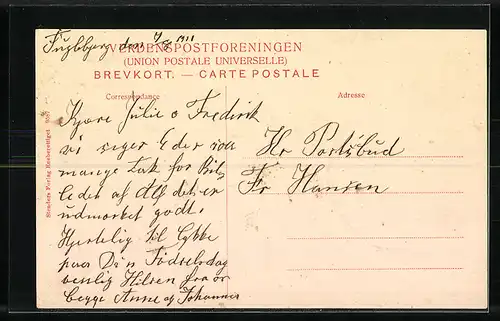 Fuglebjerg den 4/8 1911
VERDENSPOSTFORENINGEN
(UNION POSTALE UNIVERSELLE)
BREVKORT. — CARTE POSTALE
Correspondance
Adresse
Kjære Julie o Fredrik
vi siger Eder saa
mange Tak for Bil,
ledet af Alf det er
udmærket godt.
Hjertelig til Lykke
paa Din Fødselsdag
venlig Hilsen fra os
begge Anne og Johannes
Hr Portbud
Fr Hansen
Stenders Forlag Eneberettiget